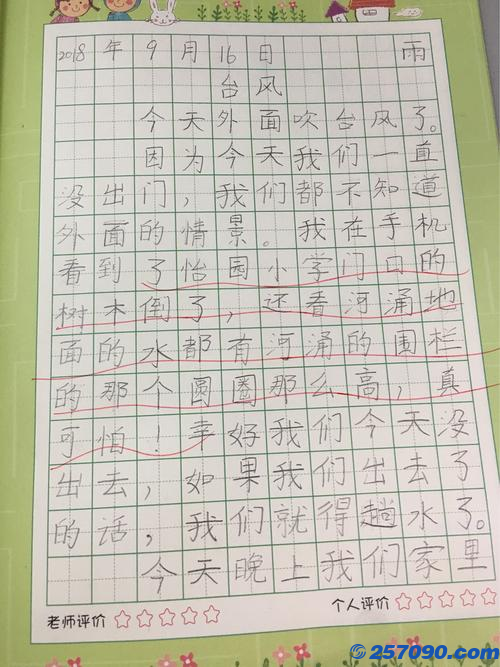 2018年9月16日 雨
台风
今天外面吹台风了。
因为今天我们一直
没出门，我们都不知道
外面的情景。我在手机
看到了怡园小学门口的
树木倒了，还看河涌地
面的水都有河涌的围栏
的那个圆圈那么高，真
可怕！幸好我们今天没
出去，如果我们出去了
的话，我们就得趟水了。
今天晚上我们家里
老师评价 个人评价
257090.com